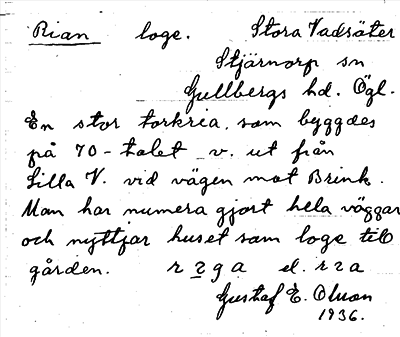 Rian loge. Stora Vadsäter
Stjärnorp sn
Gullbergs hd. Ögl.
En stor torkria, som byggdes
på 70-talet v. ut från
Lilla V. vid vägen mot Brink.
Man har numera gjort hela väggar
och nyttjar huset som loge till
gården. r i g a el. r i a
Gustaf E. Olson
1936.